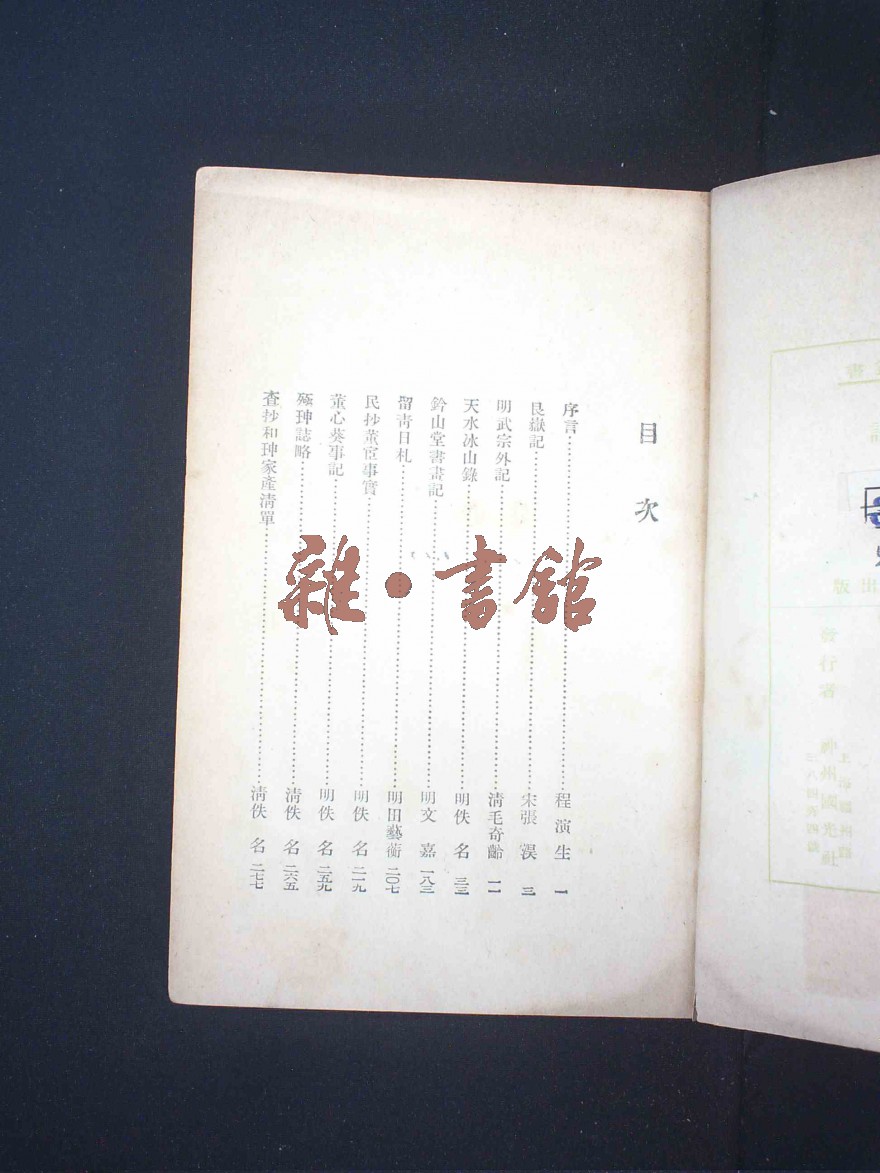 目次
序言 程演生 一
艮嶽記 宋張淏 三
明武宗外記 清毛奇齡 一一
天水冰山錄 明佚名 三三
鈐山堂書畫記 明文嘉 一八三
留青日札 明田藝蘅 二〇七
民抄董宦事實 明佚名 二一九
董心葵事記 明佚名 二五九
殛珅誌略 清佚名 二六五
查抄和珅家產清單 清佚名 二七七
雜·書館
版出
發行者
神州國光社